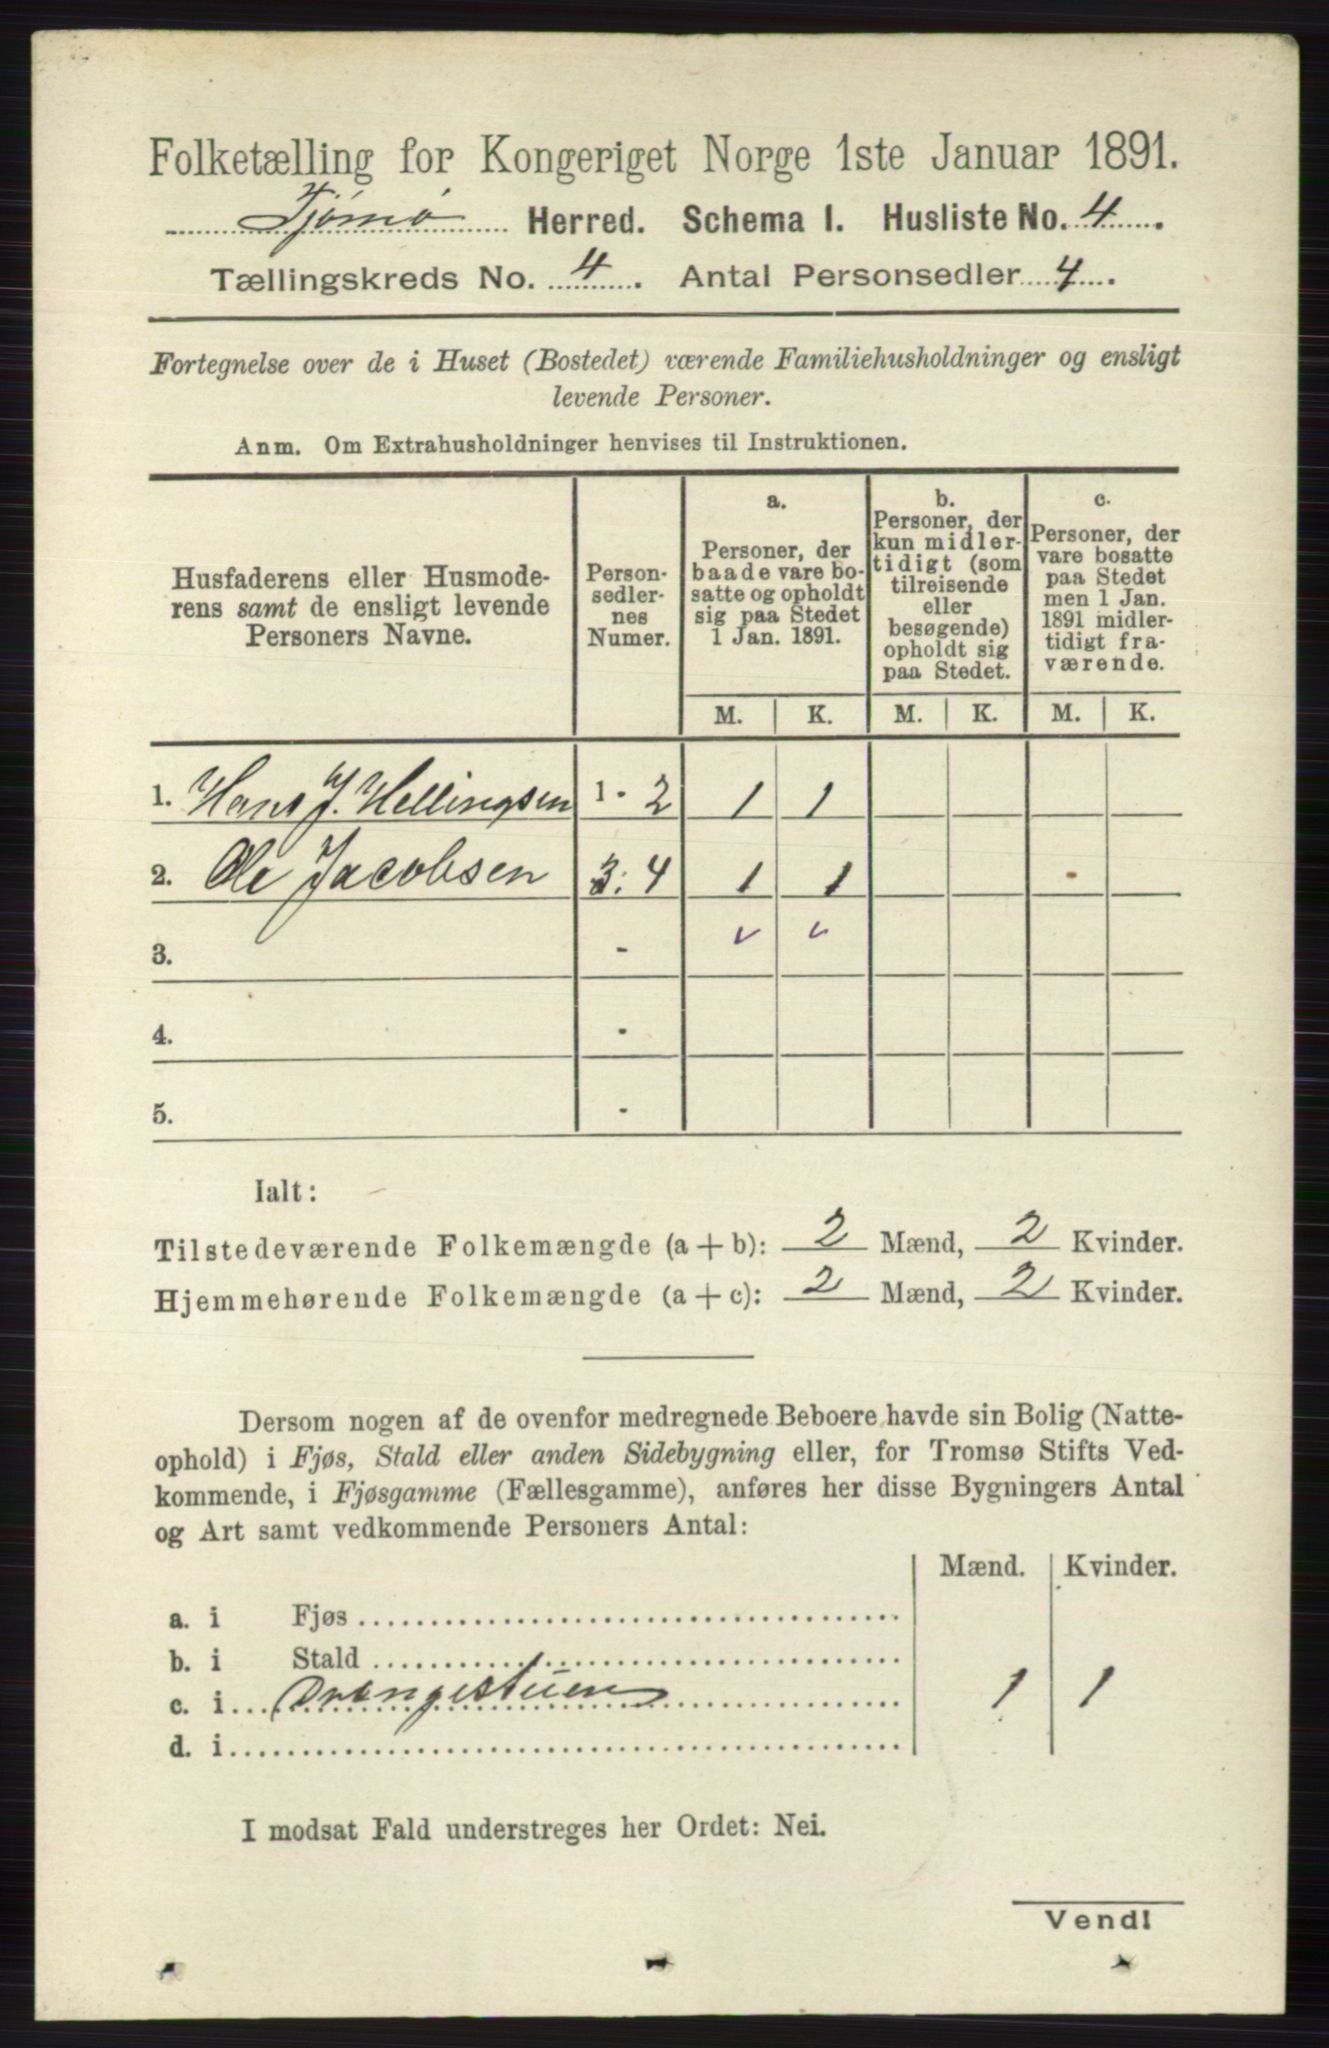 Folketælling for Kongeriget Norge 1ste Januar 1891.
Tjømø Herred. Schema I. Husliste No. 4.
Tællingskreds No. 4. Antal Personsedler 4.
Fortegnelse over de i Huset (Bostedet) værende Familiehusholdninger og ensligt
levende Personer.
Anm. Om Extrahusholdninger henvises til Instruktionen.
Husfaderens eller Husmode-
rens samt de ensligt levende
Personers Navne.
Person-
sedler-
nes
Numer.
a.
Personer, der
baade vare bo-
satte og opholdt
sig paa Stedet
1 Jan. 1891.
b.
Personer, der
kun midler-
tidigt (som
tilreisende
eller
besøgende)
opholdt sig
paa Stedet.
c.
Personer, der
vare bosatte
paa Stedet
men 1 Jan.
1891 midler-
tidigt fra-
værende.
M. K. M. K. M. K.
1. Hans J. Hellingsen 1 - 2 1 1
2. Ole Jacobsen 3. 4 1 1
3. -
4. -
5. -
Ialt:
Tilstedeværende Folkemængde (a + b): 2 Mænd, 2 Kvinder.
Hjemmehørende Folkemængde (a + c): 2 Mænd, 2 Kvinder.
Dersom nogen af de ovenfor medregnede Beboere havde sin Bolig (Natte-
ophold) i Fjøs, Stald eller anden Sidebygning eller, for Tromsø Stifts Ved-
kommende, i Fjøsgamme (Fællesgamme), anføres her disse Bygningers Antal
og Art samt vedkommende Personers Antal:
Mænd. Kvinder.
a. i Fjøs
b. i Stald
c. i Drengestuen 1 1
d. i
I modsat Fald understreges her Ordet: Nei.
Vend!